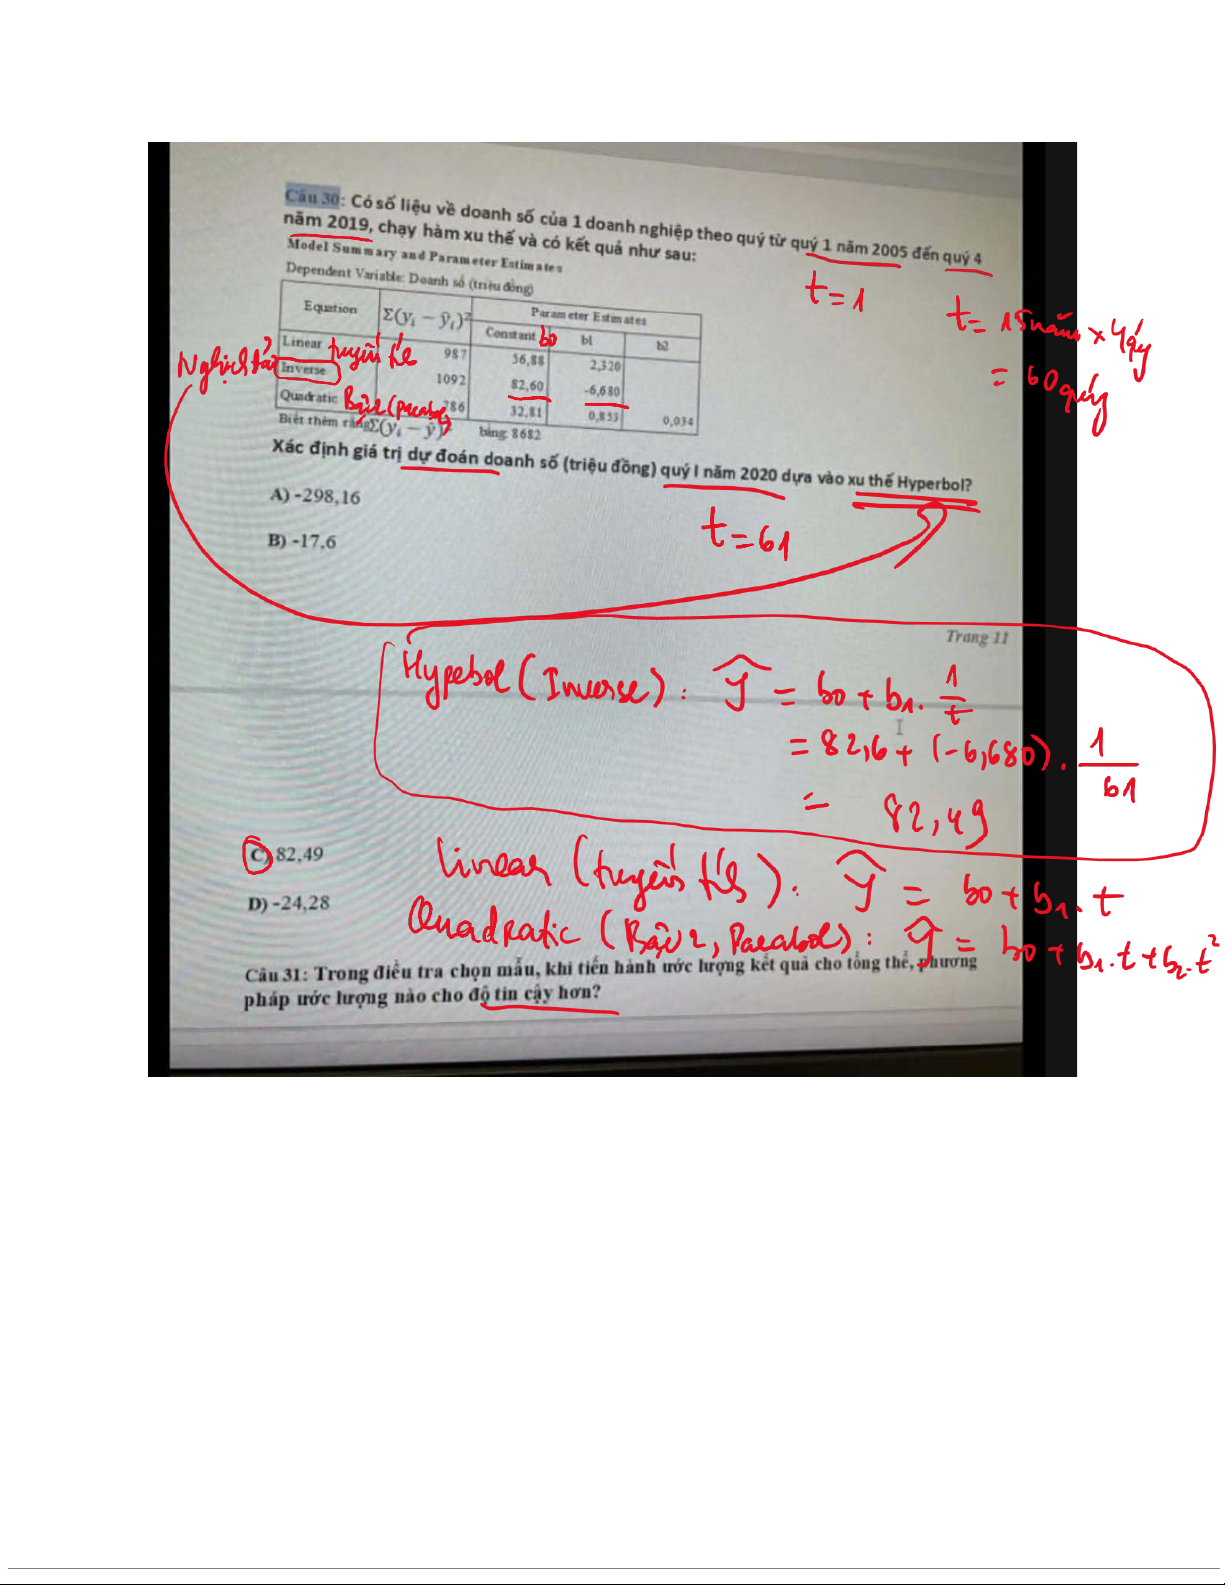 Câu 30: Có số liệu về doanh số của 1 doanh nghiệp theo quý từ quý 1 năm 2005 đến quý 4
năm 2019, chạy hàm xu thế và có kết quả như sau:
Model Summary and Parameter Estimates
Dependent Variable: Doanh số (triệu đồng)
t=1
t= 15 năm × 4 quý
= 60 quý
Equation Σ(yᵢ − ŷᵢ)² Parameter Estimates
Constant b0 b1 b2
Linear tuyến tính 987 56,88 2,320
Nghịch đảo Inverse 1092 82,60 -6,680
Quadratic Bậc 2 (parabol) 786 32,81 0,853 0,034
Biết thêm rằng Σ(yᵢ − ȳ)² bằng: 8682
Xác định giá trị dự đoán doanh số (triệu đồng) quý I năm 2020 dựa vào xu thế Hyperbol?
A) -298,16
t=61
B) -17,6
Trang 11
Hypebol (Inverse): ŷ = b0 + b1. 1/t
= 82,6 + (-6,680). 1/61
= 82,49
C) 82,49
Linear (tuyến tính): ŷ = b0 + b1. t
D) -24,28
Quadratic (Bậc 2, Parabol): ŷ = b0 + b1.t + b2.t²
Câu 31: Trong điều tra chọn mẫu, khi tiến hành ước lượng kết quả cho tổng thể, phương
pháp ước lượng nào cho độ tin cậy hơn?